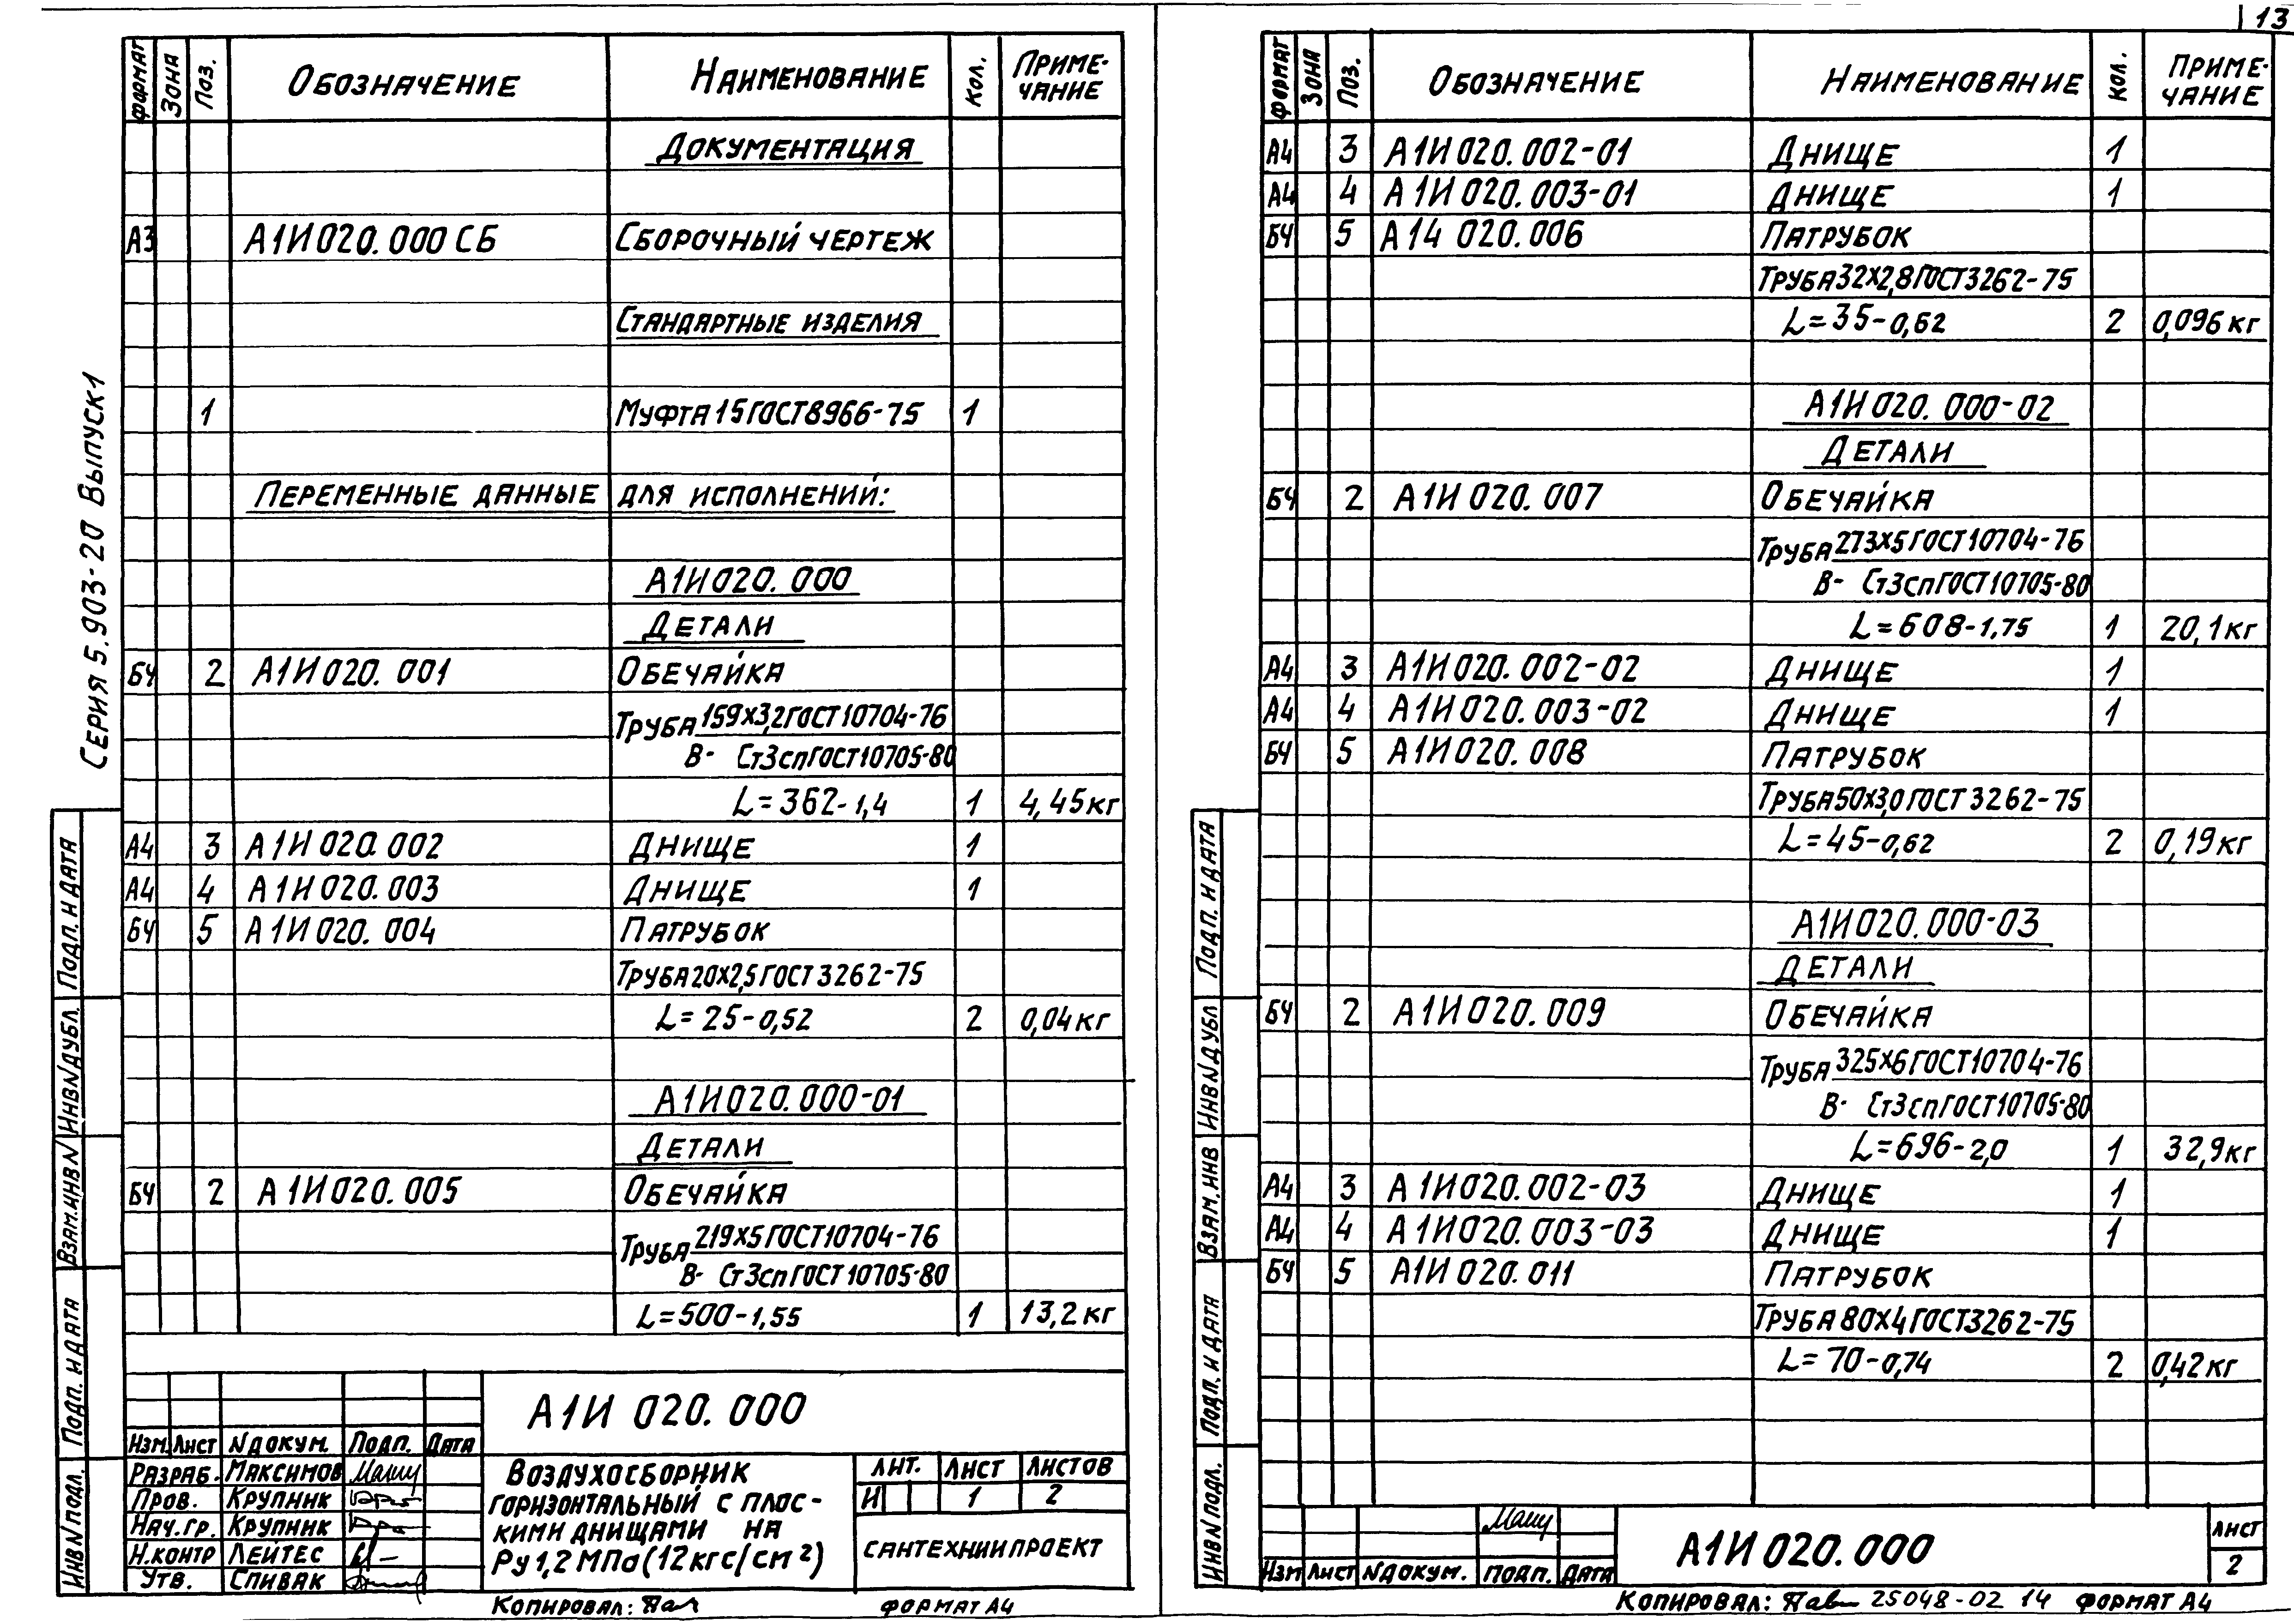 13
Серия 5.903-20 Выпуск 1
Формат Зона Поз. Обозначение Наименование Кол. Приме-
чание
Документация
А3 А1И020.000 СБ Сборочный чертеж
Стандартные изделия
1 Муфта 15 ГОСТ 8966-75 1
Переменные данные для исполнений:
А1И020.000
Детали
БЧ 2 А1И020.001 Обечайка
Труба 159х3,2 ГОСТ 10704-76
В- Ст3сп ГОСТ 10705-80
L=362-1,4 1 4,45 кг
А4 3 А1И020.002 Днище 1
А4 4 А1И020.003 Днище 1
БЧ 5 А1И020.004 Патрубок
Труба 20х2,5 ГОСТ 3262-75
L=25-0,52 2 0,04 кг
А1И020.000-01
Детали
БЧ 2 А1И020.005 Обечайка
Труба 219х5 ГОСТ 10704-76
В- Ст3сп ГОСТ 10705-80
L=500-1,55 1 13,2 кг
Подп. и дата
Инв N дубл.
Взам. инв N
Подп. и дата
Инв N подл.
А1И 020.000
Изм. Лист N докум. Подп. Дата
Разраб. Максимов
Пров. Крупник
Нач. гр. Крупник
Н. контр Лейтес
Утв. Спивак
Воздухосборник
горизонтальный с плос-
кими днищами на
Ру 1,2 МПа (12 кгс/см²)
Лит. Лист Листов
И 1 2
Сантехниипроект
Копировал: Формат А4
Формат Зона Поз. Обозначение Наименование Кол. Приме-
чание
А4 3 А1И020.002-01 Днище 1
А4 4 А1И020.003-01 Днище 1
БЧ 5 А14 020.006 Патрубок
Труба 32х2,8 ГОСТ 3262-75
L=35-0,62 2 0,096 кг
А1И020.000-02
Детали
БЧ 2 А1И020.007 Обечайка
Труба 273х5 ГОСТ 10704-76
В- Ст3сп ГОСТ 10705-80
L=608-1,75 1 20,1 кг
А4 3 А1И020.002-02 Днище 1
А4 4 А1И020.003-02 Днище 1
БЧ 5 А1И020.008 Патрубок
Труба 50х3,0 ГОСТ 3262-75
L=45-0,62 2 0,19 кг
А1И020.000-03
Детали
БЧ 2 А1И020.009 Обечайка
Труба 325х6 ГОСТ 10704-76
В- Ст3сп ГОСТ 10705-80
L=696-2,0 1 32,9 кг
А4 3 А1И020.002-03 Днище 1
А4 4 А1И020.003-03 Днище 1
БЧ 5 А1И020.011 Патрубок
Труба 80х4 ГОСТ 3262-75
L=70-0,74 2 0,42 кг
Подп. и дата
Инв N дубл
Взам. инв
Подп. и дата
Инв N подл.
Изм Лист N докум. Подп. Дата
А1И 020.000
Лист
2
Копировал: 25048-02 14 Формат А4